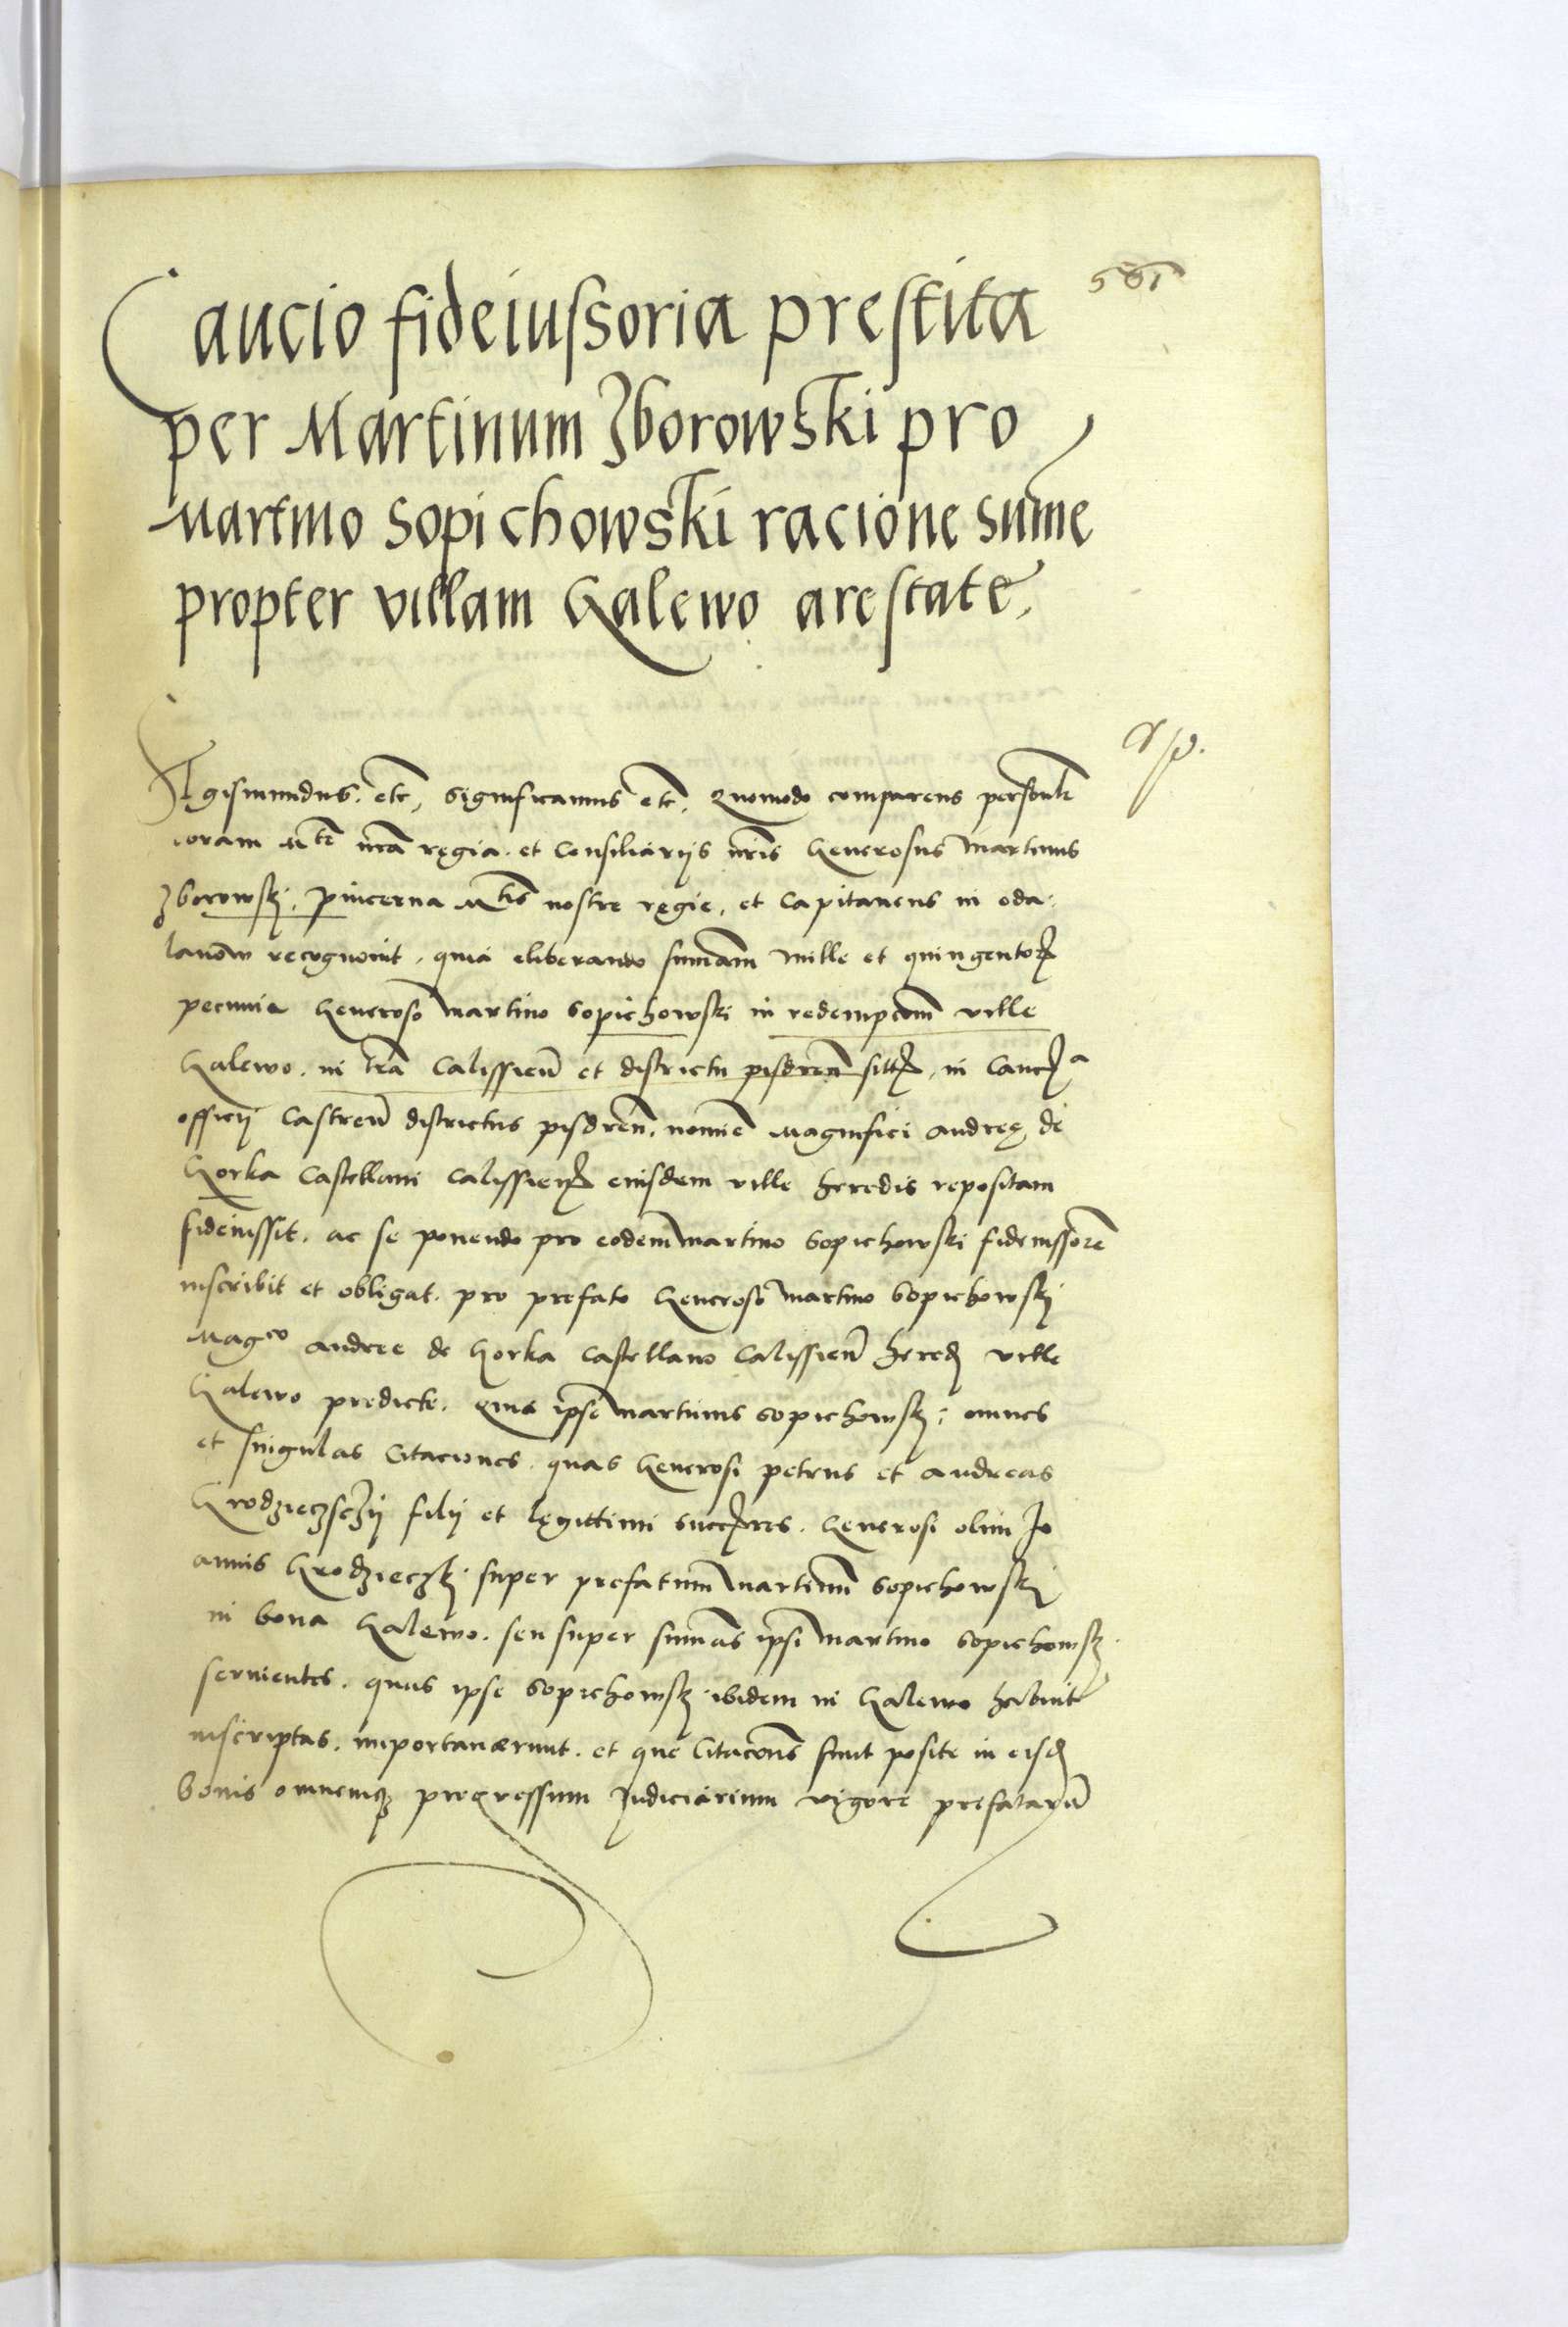 561
Caucio fideiussoria prestita
per Martinum Zborowski pro
Martino Sopichowski racione sume
propter villam Galewo arestate.
Sigismundus. etc, significamus etc. Quomodo comparens personlr
coram Mte nrã regia. et Consiliariis nris Generosus Martinus
Zborowski. pincerna Mtis nostre regie, et Capitaneus in oda-
lanow recognovit. quia eliberando summam mille et quingentor
pecunia Generoso Martino Sopichowski in redempcom ville
Galewo. in tra Calissien et districtu pisdren in Canca
officii Castren districtus pisdren. nomine Magnifici Andree de
Gorka Castellani Calissien eiusdem ville heredis repositam
fideiussit. ac se ponendo pro eodem Martino Sopichowski fideiussorem
inscribit et obligat. pro prefato Generoso Martino Sopichowski
Magco Andree de Gorka Castellano Calissien hered ville
Galewo predicte. quia ipse Martinus Sopichowski omnes
et singulas Citaciones. quas Generosi petrus et Andreas
Grodzieczsczii filii et legittimi succres. Generosi olim Jo
annis Grodzieczski super prefatum Martinum Sopichowski
in bona Galewo. seu super sumas ipsi Martino Sopichowski
servientes. quas ipse Sopichowski ibidem in Galewo habuit
inscriptas. importaverunt. et que Citacons sunt posite in eisd
bonis omnemq progressum Judiciarium vigore prefatarum